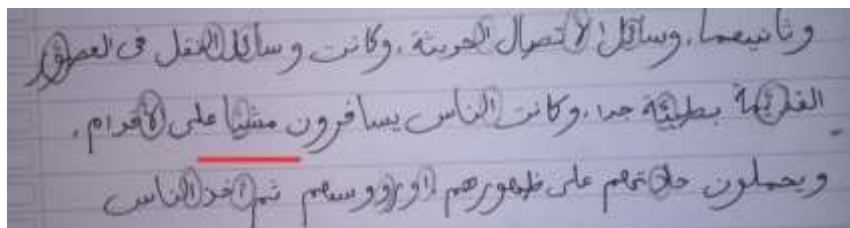 وثانيهما. وسائل الاتصال الحديثة. وكانت وسائل النقل في العصور
القديمة بطيئة جدا. وكانت الناس يسافرون مشيا على الأقدام.
ويحملون حاجاتهم على ظهورهم او رؤوسهم ثم أخذ الناس